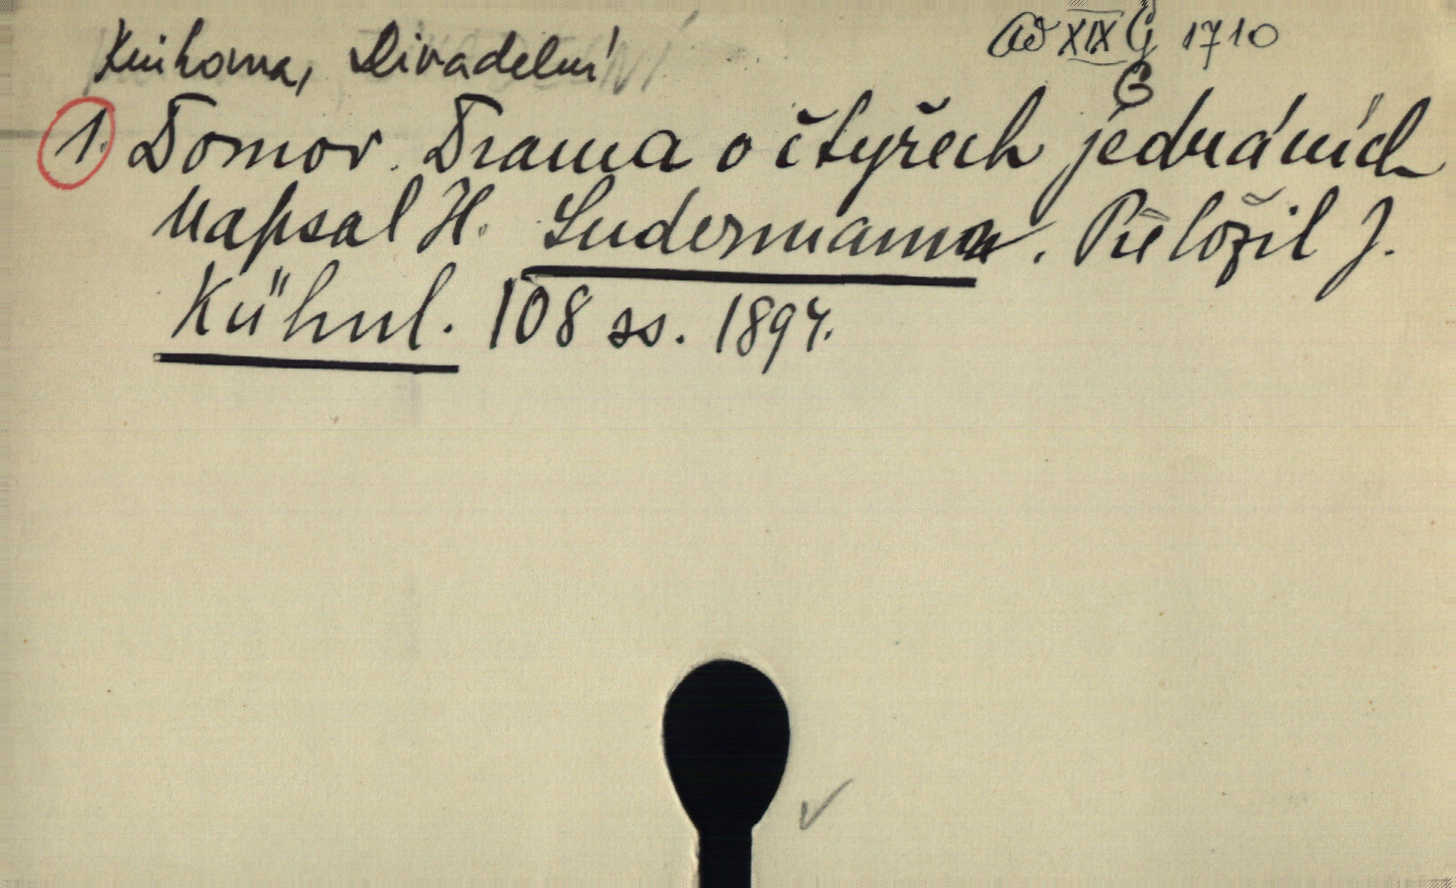 Knihovna, Divadelní
ad XIX G 1710
G
1. Domov. Drama o čtyřech jednáních
napsal H. Sudermann. Přeložil J.
Kühnl. 108 ss. 1894.